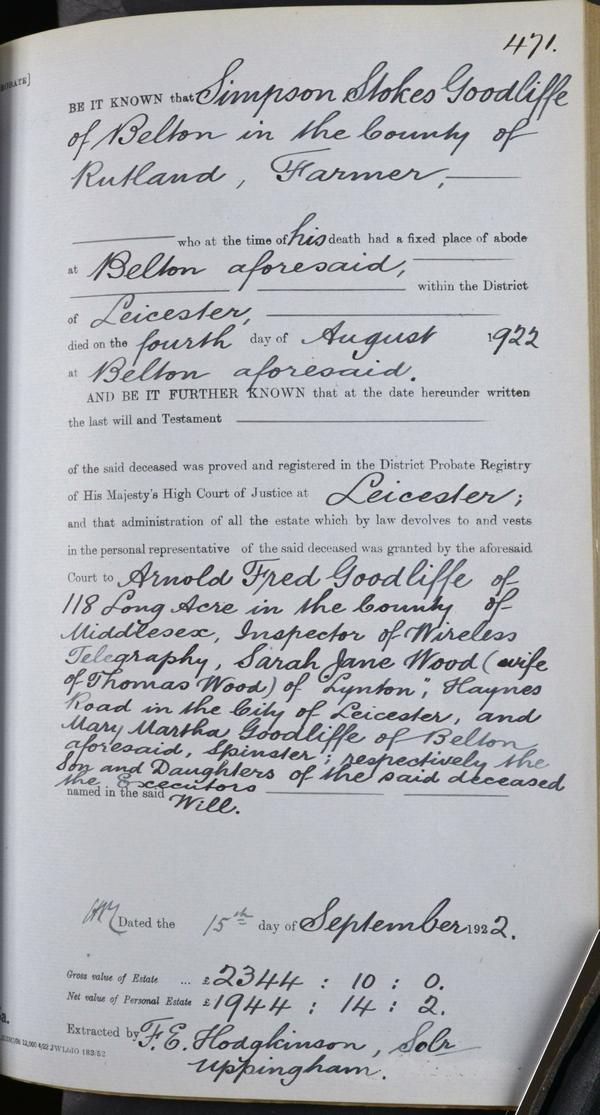 471.
BE IT KNOWN that Simpson Stokes Goodliffe
of Belton in the County of
Rutland, Farmer,
who at the time of his death had a fixed place of abode
at Belton aforesaid,
within the District
of Leicester,
died on the fourth day of August 1922
at Belton aforesaid.
AND BE IT FURTHER KNOWN that at the date hereunder written
the last will and Testament
of the said deceased was proved and registered in the District Probate Registry
of His Majesty's High Court of Justice at Leicester;
and that administration of all the estate which by law devolves to and vests
in the personal representative of the said deceased was granted by the aforesaid
Court to Arnold Fred Goodliffe of
118 Long Acre in the County of
Middlesex, Inspector of Wireless
Telegraphy, Sarah Jane Wood (wife
of Thomas Wood) of "Lynton", Haynes
Road in the City of Leicester, and
Mary Martha Goodliffe of Belton
aforesaid, Spinster; respectively the
Son and Daughters of the said deceased
the Executors
named in the said Will.
Dated the 15th day of September 1922.
Gross value of Estate ... £2344 : 10 : 0.
Net value of Personal Estate £1944 : 14 : 2.
Extracted by F. E. Hodgkinson, Solr
Uppingham.